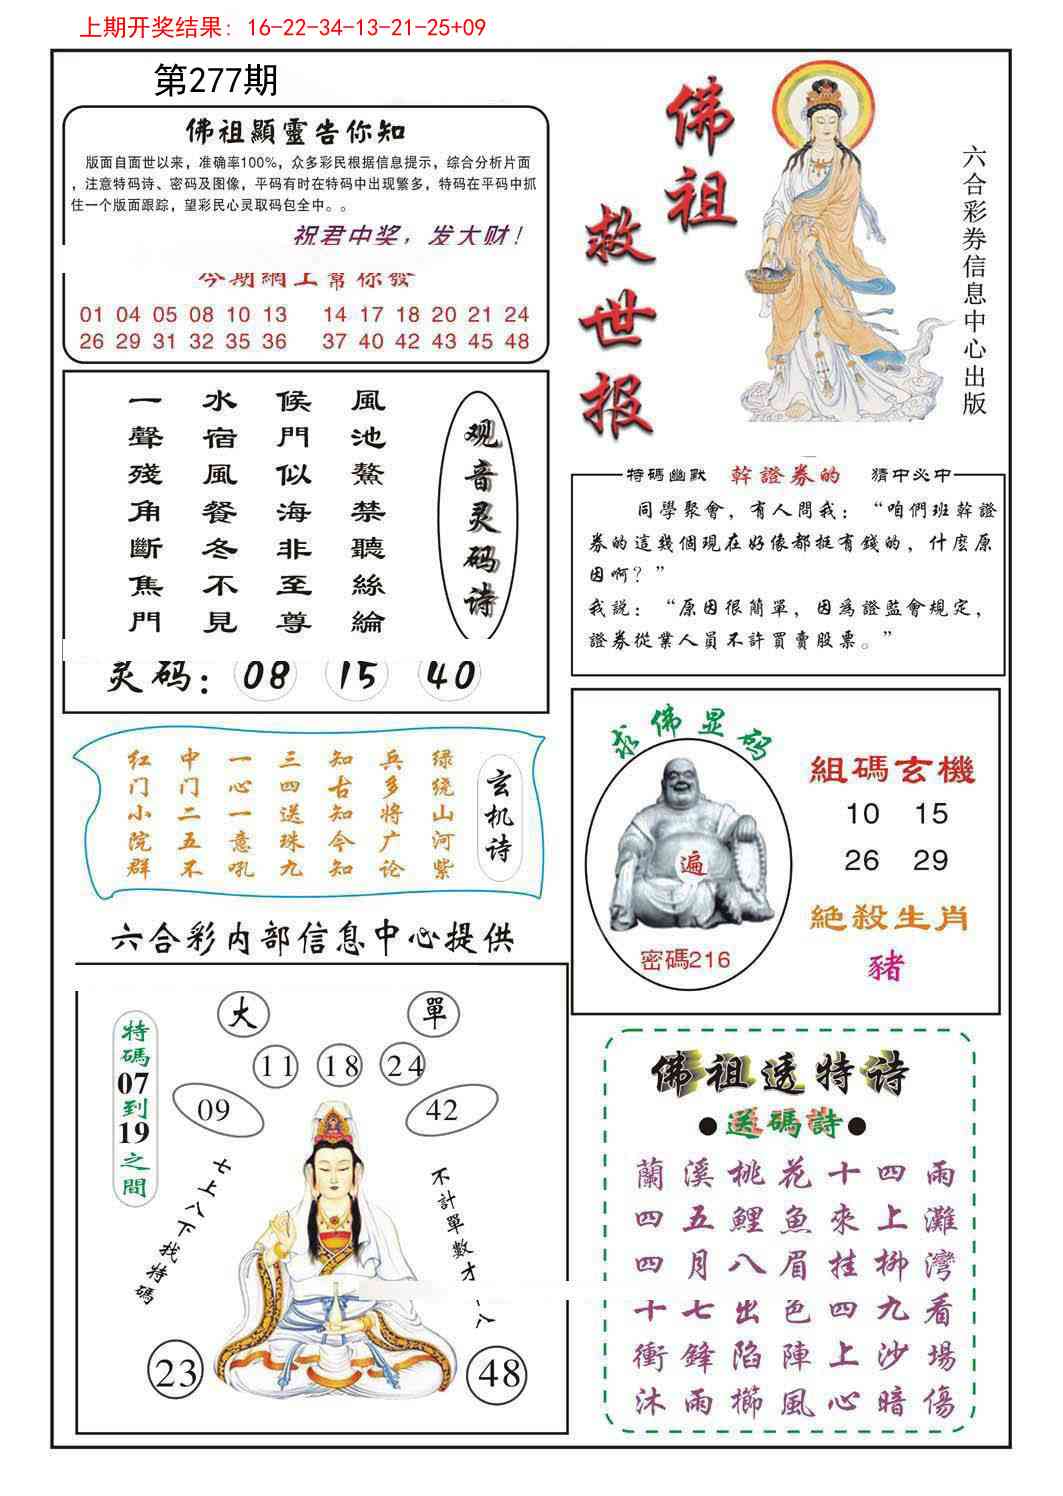 上期开奖结果: 16-22-34-13-21-25+09
第277期
佛祖顯靈告你知
版面自面世以来，准确率100%，众多彩民根据信息提示，综合分析片面
，注意特码诗、密码及图像，平码有时在特码中出现繁多，特码在平码中抓
住一个版面跟踪，望彩民心灵取码包全中。。
祝君中奖，发大财！
今期網上幫你發
01 04 05 08 10 13 14 17 18 20 21 24
26 29 31 32 35 36 37 40 42 43 45 48
佛祖
救世报
六合彩券信息中心出版
观音灵码诗
風池鰲禁聽絲綸
候門似海非至尊
水宿風餐冬不見
一聲殘角斷焦門
灵码：08 15 40
特碼幽默 幹證券的 猜中必中
同學聚會，有人問我：“咱們班幹證
券的這幾個現在好像都挺有錢的，什麼原
因啊？”
我説：“原因很簡單，因為證監會規定，
證券從業人員不許買賣股票。”
玄机诗
绿绕山河紫
兵多将广论
知古知今知
三四送珠九
一心一意吼
中门二五不
红门小院群
求佛显码
遍
密碼216
組碼玄機
10 15
26 29
絕殺生肖
豬
六合彩内部信息中心提供
特碼07到19之間
大 單
11 18 24
09 42
七上八下找特碼
不計單數才
八
23 48
佛祖透特诗
●送碼詩●
蘭溪桃花十四雨
四五鯉魚來上灘
四月八眉挂柳灣
十七出色四九看
衝鋒陷陣上沙場
沐雨櫛風心暗傷